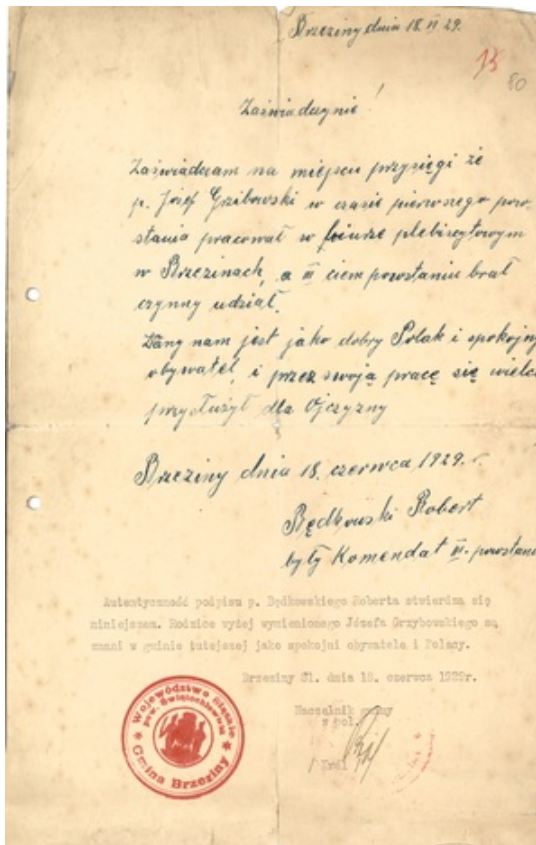 Brzeziny dnia 18.VI 29.
15
80
Zaświadczynie!
Zaświadczam na miejscu przysięgi że
p. Josef Gzibowski w czasie pierwszego pow-
stania pracował w biurze plebiscytowym
w Brzezinach, a III ciem powstaniu brał
czynny udział.
Znany nam jest jako dobry Polak i spokojny
obywatel, i przez swoją pracę się wielce
przysłużył dla Ojczyzny
Brzeziny dnia 18. czerwca 1929. r.
Będkowski Robert
były Komendat III. powstani
Autentyczność podpisu p. Będkowskiego Roberta stwierdza się
niniejszem. Rodzice wyżej wymienionego Józefa Grzybowskiego są
znani w gminie tutejszej jako spokojni obywatele i Polacy.
Brzeziny Śl. dnia 18. czerwca 1929r.
Naczelnik gminy
z pol.
/ Król
Województwo Śląskie
pow. Świętochłowice
Gmina Brzeziny